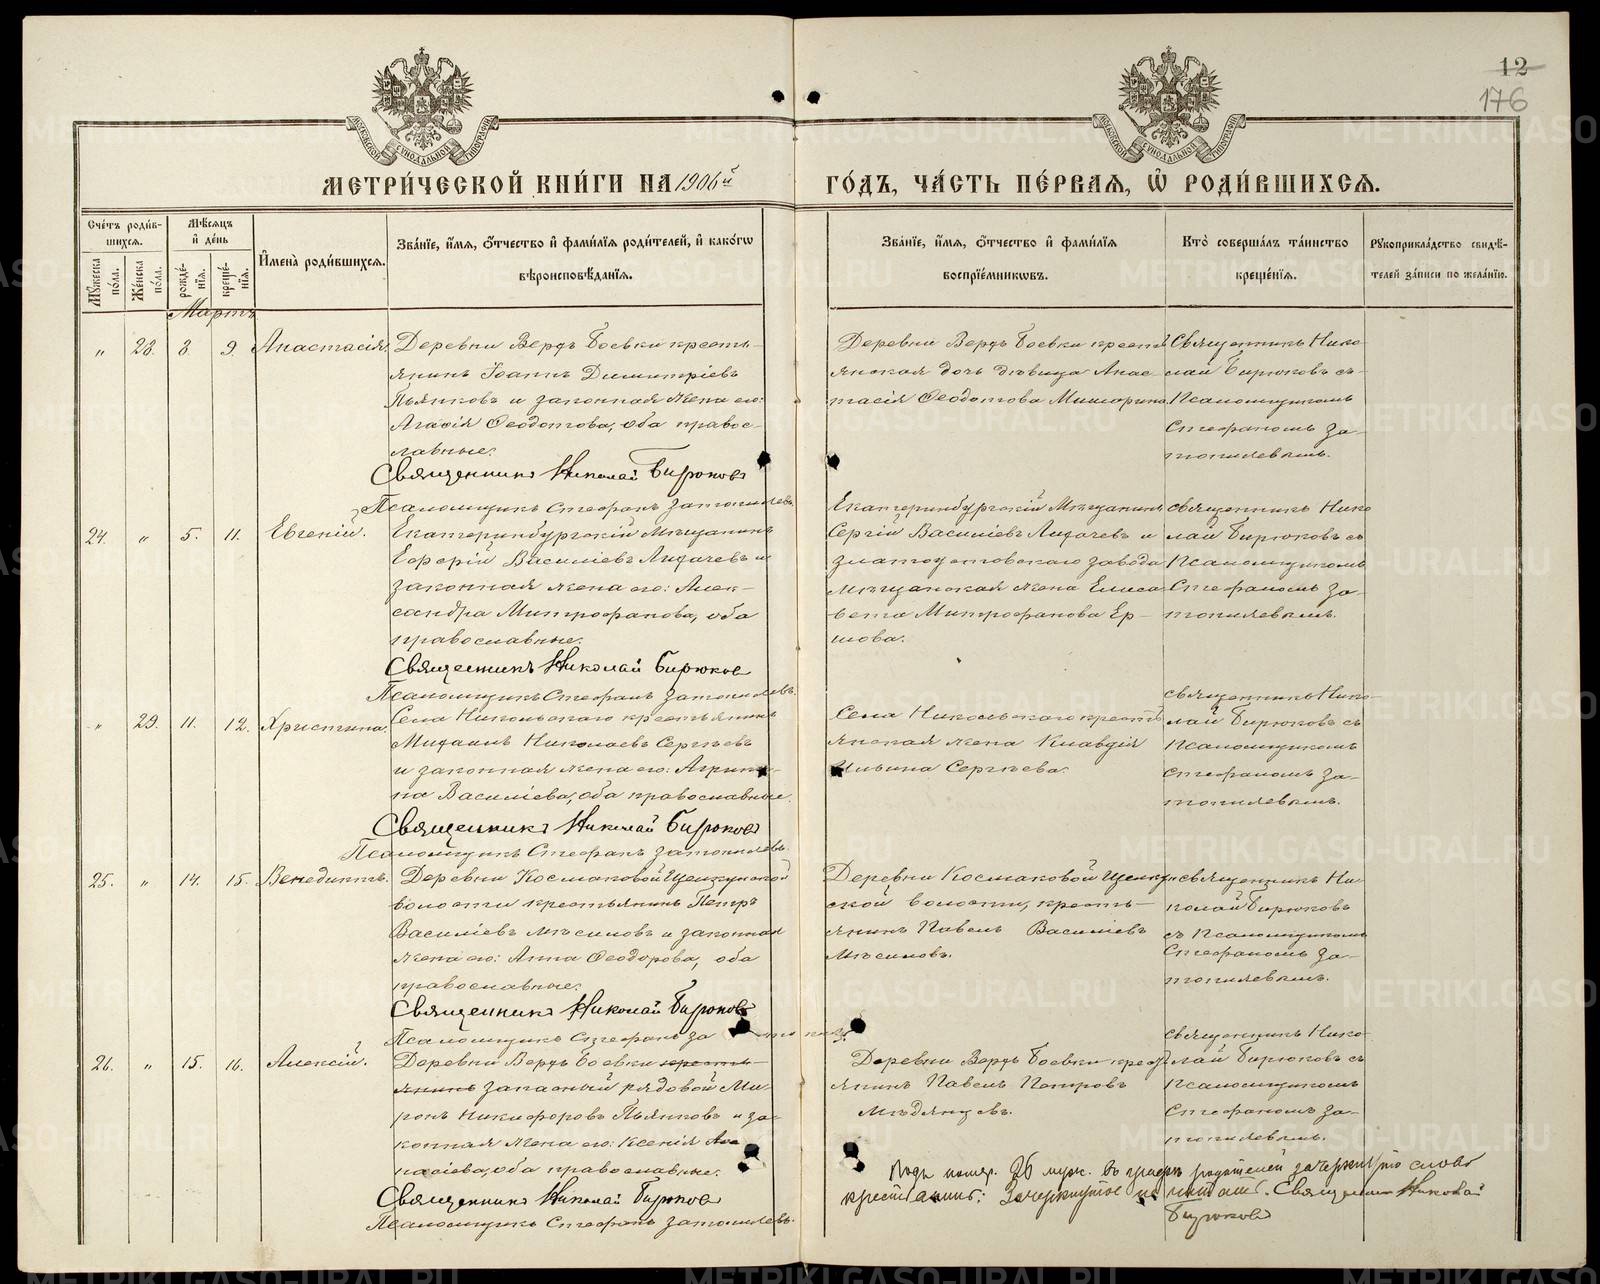 12
176
МОСКОВСКОЙ СѴНОДАЛЬНОЙ ТИПОГРАФІИ
МОСКОВСКОЙ СѴНОДАЛЬНОЙ ТИПОГРАФІИ
МЕТРИ́ЧЕСКОЙ КНИ́ГИ НА 1906й ГО́ДЪ, ЧА́СТЬ ПЕ́РВАЯ, Ѽ РОДИ́ВШИХСЯ.
Сче́тъ роди́в-
шихся.
Мꙋ́жеска по́ла.
Же́нска по́ла.
Мѣ́сяцъ
и де́нь
рожде́-
нія.
креще́-
нія.
И҆мена̀ роди́вшихся.
Зва́нїе, и҆́мя, ѻ҆́тчество и҆ фами́лїя роди́телей, и҆ како́гѡ
вѣроисповѣ́данїя.
Зва́нїе, и҆́мя, ѻ҆́тчество и҆ фами́лїя
воспрїе́мникѡвъ.
Кто̀ соверша́лъ та́инство
креще́нїя.
Рꙋкоприкла́дство свидѣ́-
телей за́писи по жела́нїю.
Мартъ
" 28. 8 9. Анастасія.
Деревни Верхъ Боевки кресть-
янинъ Іоаннъ Димитріевъ
Пьянковъ и законная жена его:
Агафія Ѳеодотова, оба правос-
лавные.
Священникъ Николай Бирюковъ
Псаломщикъ Стефанъ Затопляевъ.
Деревни Верхъ Боевки крестья
янская дочь дѣвица Анас-
тасія Ѳеодотова Мишарина
Священникъ Нико-
лай Бирюковъ съ
Псаломщикомъ
Стефаномъ За-
топляевымъ.
24. " 5. 11. Евгеній.
Екатеринбургскій Мѣщанинъ
Василіевъ Лихачевъ и
законная жена его: Алек-
сандра Митрофанова, оба
православные.
Священникъ Николай Бирюков
Псаломщикъ Стефанъ Затопляевъ.
Екатеринбургскій Мѣщанинъ
Сергій Василіевъ Лихачевъ и
златоустовскаго завода
мѣщанская жена Елиса
вета Митрофанова Ер-
шова.
священникъ Нико
лай Бирюковъ съ
Псаломщикомъ
Стефаномъ За-
топляевымъ.
" 29. 11. 12. Христина.
Села Никольскаго крестьянинъ
Михаилъ Николаевъ Сергѣевъ
и законная жена его: Агрип-
на Василіева, оба православные.
Священникъ Николай Бирюковъ
Псаломщикъ Стефанъ Затопляевъ.
Села Никольскаго кресть
янская жена Клавдія
Ильина Сергѣева.
священникъ Нико-
лай Бирюковъ съ
Псаломщикомъ
Стефаномъ За-
топляевымъ.
25. " 14. 15. Венедиктъ.
Деревни Космаковой Щелкунской
волости крестьянинъ Петръ
Василіевъ Мѣсиловъ и законная
жена его: Анна Ѳеодорова, оба
православные.
Священникъ Николай Бирюковъ
Псаломщикъ Стефанъ За
Деревни Космаковой Щелкун
ской волости, кресть-
янинъ Павелъ Василіевъ
Мѣсиловъ.
священникъ Ни-
колай Бирюковъ
съ Псаломщикомъ
Стефаномъ За-
топляевымъ.
26. " 15. 16. Алексій.
Деревни Верхъ Боевки кресть-
янинъ запасный рядовой Ми-
ронъ Никифоровъ Пьянковъ и за-
конная жена его: Ксенія Афа
насіева, оба православные.
Священникъ Николай Бирюковъ
Псаломщикъ Стефанъ Затопляевъ.
Деревни Верхъ Боевки крест
янинъ Павелъ Петровъ
Мѣдянцевъ.
священникъ Нико-
лай Бирюковъ съ
Псаломщикомъ
Стефаномъ За-
топляевымъ.
Подъ номер. 26 муж. въ графѣ родителей зачеркнуто слово
крестьянинъ: Зачеркнутое не читать. Священник Николай
Бирюковъ
METRIKI.GASO-URAL.RU